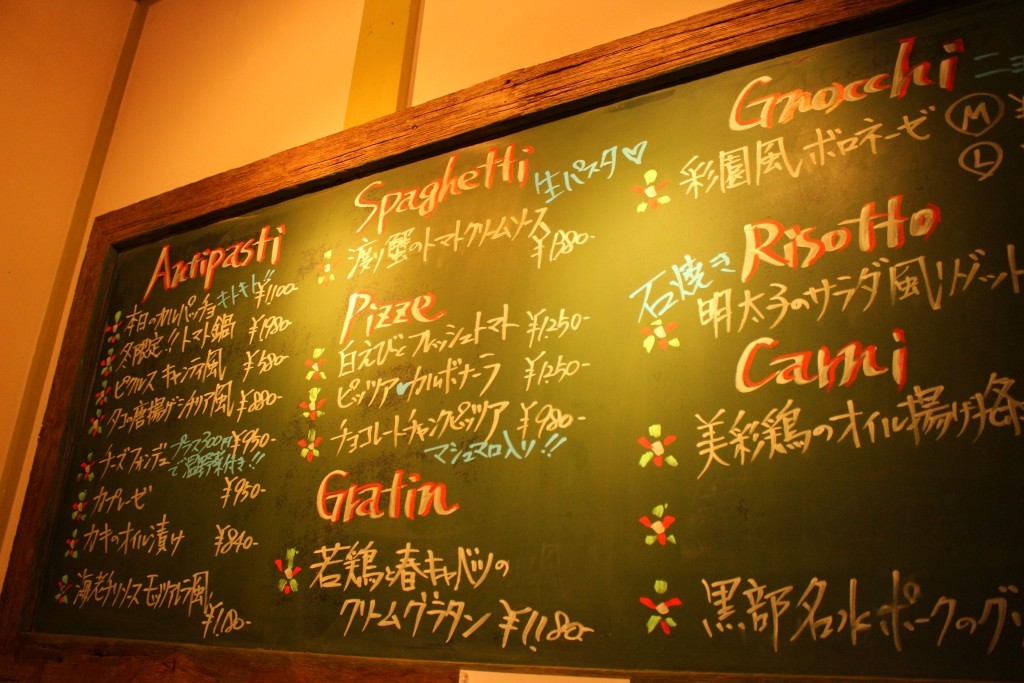 Antipasti
本日のカルパッチョ キトキト!! ¥1100-
冬限定!! トマト鍋 ¥1,980-
ピクルス キャンティ風 ¥580-
タコの唐揚ゲ シチリア風 ¥880-
チーズフォンデュ ¥950-
プラス300円で温野菜付き!!
カプレーゼ ¥950-
カキのオイル漬け ¥840-
海老チリソース モッツァレラ風
¥1,180-
Spaghetti 生パスタ♡
渡り蟹のトマトクリームソース
¥1380-
Pizze
白えびとフレッシュトマト ¥1.250-
ピッツァ カルボナーラ ¥1.250-
チョコレートチャンクピッツア ¥980-
マシュマロ入り!!
Gratin
若鶏と春キャベツの
クリームグラタン ¥1,180-
Gnocchi
彩園風 ボロネーゼ M
L
石焼き Risotto
明太子のサラダ風リゾット
Carni
美彩鶏のオイル揚げ
黒部名水ポークのグリ